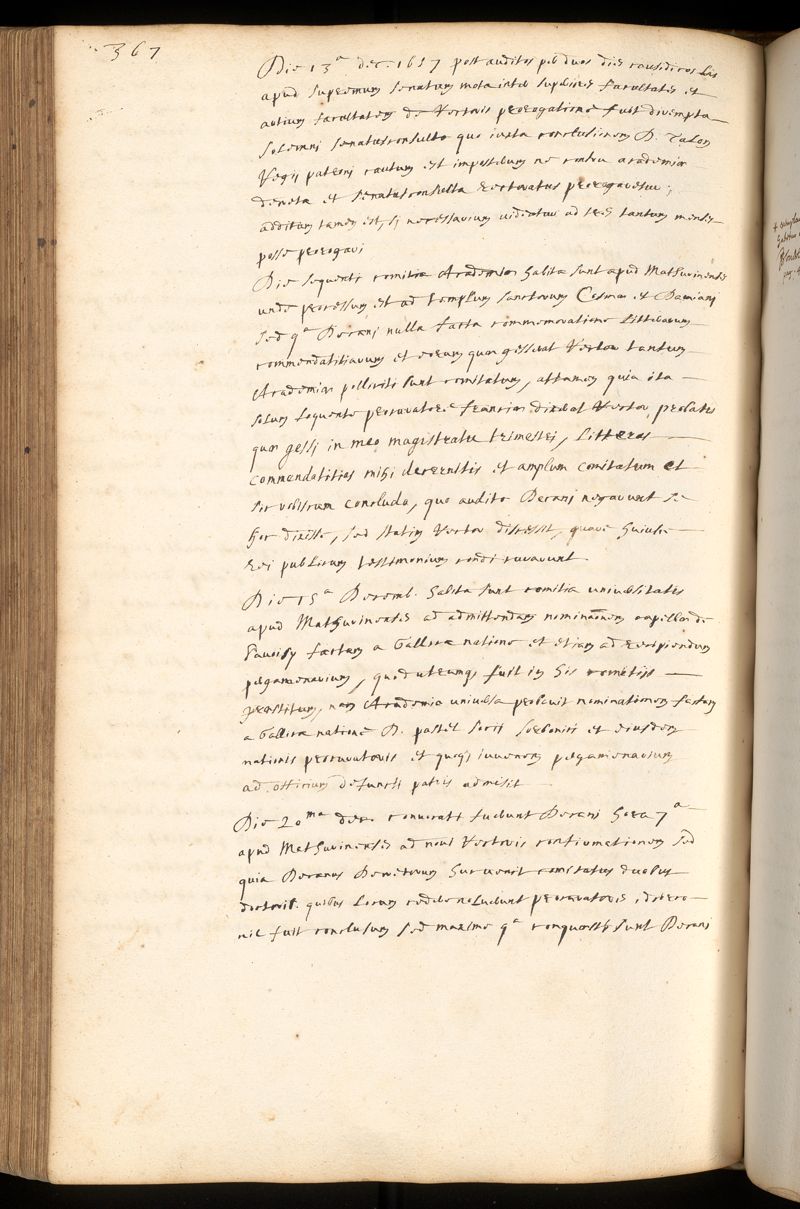 367
Die 13a dec. 1657 post auditos p̃ duos dies causidicos lis
apud supremum senatum mota inter superiores facultates et
artium facultatem de Rectoris prorogatione fuit dirempta
solemni senatusconsulto quo iuxta conclusionem D. Talon
Regii patroni cautum est imposterum ne contra academiae
decreta et senatusconsulta Rectoratus prorogaretur;
additum tamen est, si necessarium videatur ad tres tantum menses
posse prorogari
Die sequenti comitia Academiae habita sunt apud Mathurinenses
unde processum est ad templum sanctorum Cosmae et Damiani
sed qa Decani nulla facta commemoratione litterarum
commendatitiarum et eorum quae gesserat Rector tantum
Academiae polliciti sunt comitatum, attamen quia ita
solum loquente procuratore franciae dixerat Rector, probatis
quae gessi in meo magistratu trimestri, litteras
commendatitias mihi decernitis et amplum comitatum et
sic vobiscum concludo, quo audito Decani negavunt se
hoc dixisse, sed statim Rector discessit, quare huiusce
rei publicum testimonium condi curarunt.
Die 15a Decemb. habita sunt comitia universitatis
apud Mathurinenses ad admittendam nominãonem capellae de
factam a Gallicae natione et etiam ad recipiendum
pergamenarium, quod utrumq; fuit in his comitiis
praestitum, nam Academia universa probavit nominationem factam
a Gallica natione D. pastel socii sorbonici et eiusdem
nationis procuratoris et quoq; iuvenem pergamenarium
ad officium defuncti patris admisit
Die 20ma dec. convocati fuerunt Decani hora 7a
apud Mathurinenses ad novi Rectoris confirmationem sed
quia Decanus Decretorum supervenit comitatus duobus
doctorib. quibus locum cedere nolucrunt procuratores, idcirco
nil fuit conclusum sed maxime qa conquesti sunt Decani